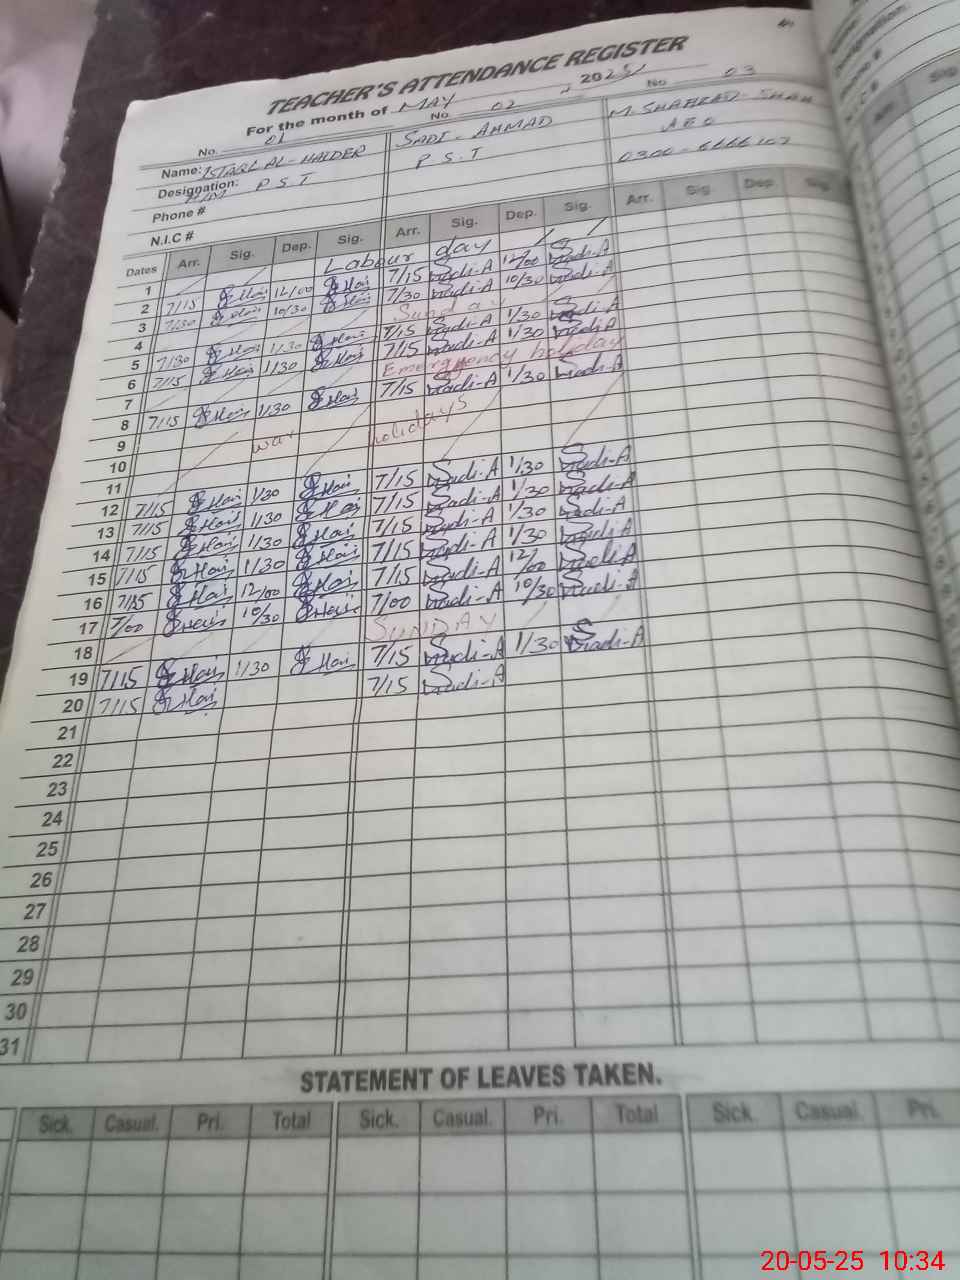 TEACHER'S ATTENDANCE REGISTER
For the month of MAY , 2025
No. 01 No. 02 No 03
Name: AL-HAIDER SADI-AHMAD M. SHAHZAD SHAH
Designation: P S T P S T A E O
Phone # 0300-
N.I.C #
Dates Arr. Sig. Dep. Sig. Arr. Sig. Dep. Sig. Arr. Sig. Dep. Sig
1 Labour day
2 7/15 12/00 7/15 Sadi-A 12/00 Sadi-A
3 7/30 10/30 7/30 Sadi-A 10/30 Sadi-A
4 Sunday
5 7/30 1/30 7/15 Sadi-A 1/30 Sadi-A
6 7/15 1/30 7/15 Sadi-A 1/30 Sadi-A
7 Emergency holiday
8 7/15 1/30 7/15 Sadi-A 1/30 Sadi-A
9 war holidays
10
11
12 7/15 1/30 7/15 Sadi-A 1/30 Sadi-A
13 7/15 1/30 7/15 Sadi-A 1/30 Sadi-A
14 7/15 1/30 7/15 Sadi-A 1/30 Sadi-A
15 7/15 1/30 7/15 Sadi-A 1/30 Sadi-A
16 7/15 12/00 7/15 Sadi-A 12/00 Sadi-A
17 7/00 10/30 7/00 Sadi-A 10/30 Sadi-A
18 SUNDAY
19 7/15 1/30 7/15 Sadi-A 1/30 Sadi-A
20 7/15 7/15 Sadi-A
21
22
23
24
25
26
27
28
29
30
31
STATEMENT OF LEAVES TAKEN.
Sick. Casual. Pri. Total Sick. Casual. Pri. Total Sick. Casual. Pri.
20-05-25 10:34